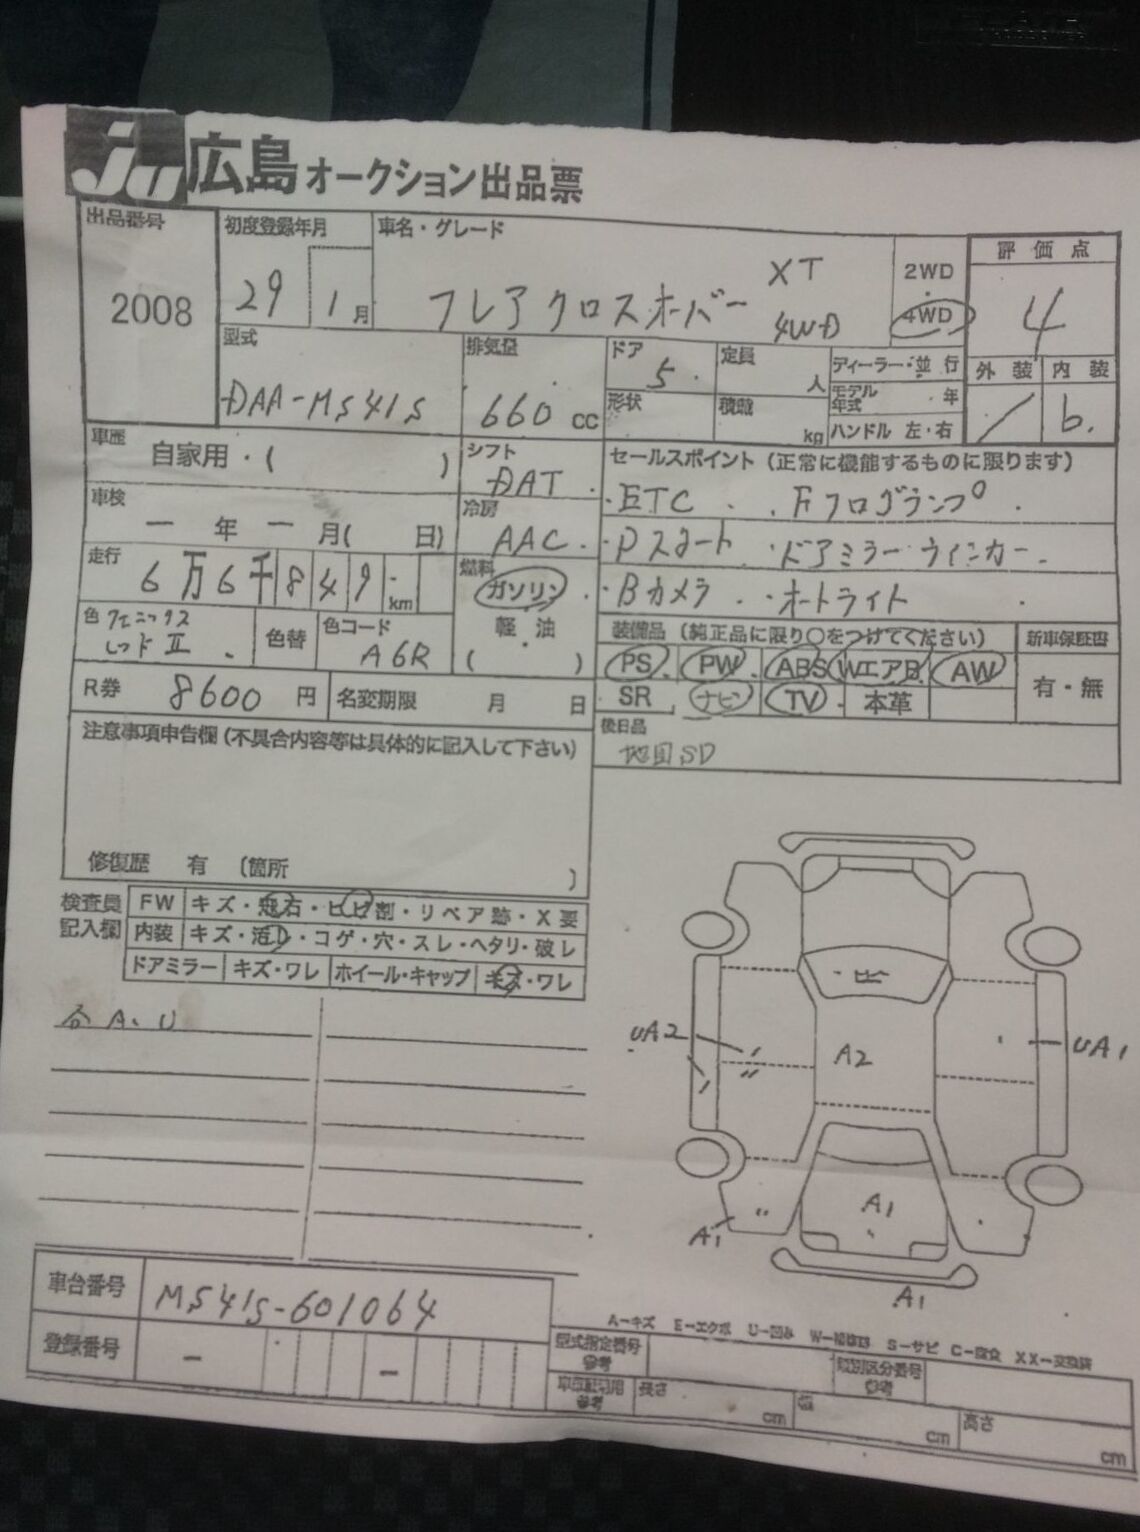 ju 広島 オークション出品票
出品番号 初度登録年月 車名・グレード 評価点
2008 29 1月 フレアクロスオーバー XT 4WD 2WD 4WD 4
型式 排気量 ドア 定員 ディーラー・並行 外装 内装
DAA-MS41S 660 cc 5 人 モデル年式 年 b.
形状 積載 kg ハンドル 左・右
車歴 自家用・( ) シフト DAT セールスポイント(正常に機能するものに限ります)
車検 ー年ー月( 日) 冷房 AAC ・ETC ・Fフログランプ
・Pスタート ・ドアミラーウィンカー
走行 6万6千849 km 燃料 ガソリン ・Bカメラ ・オートライト
軽油
( )
色 フェニックスレッドⅡ 色替 色コード A6R
装備品(純正品に限り○をつけてください) 新車保証書
PS PW ABS WエアB AW 有・無
SR ナビ TV 本革
R券 8600円 名変期限 月 日
後日品
地図SD
注意事項申告欄(不具合内容等は具体的に記入して下さい)
修復歴 有 (箇所 )
検査員記入欄
FW キズ・飛石・ヒビ割・リペア跡・X要
内装 キズ・コゲ・穴・スレ・ヘタリ・破レ
ドアミラー キズ・ワレ ホイール・キャップ キズ・ワレ
各A、U
UA2 A2 UA1
A1 A1
A1
車台番号 MS41S-601064
登録番号 ー ー
A-キズ E-エクボ U-凹み S-サビ C-腐食 XX-交換済
型式指定番号 参考 類別区分番号 参考
参考 長さ cm 幅 cm 高さ cm